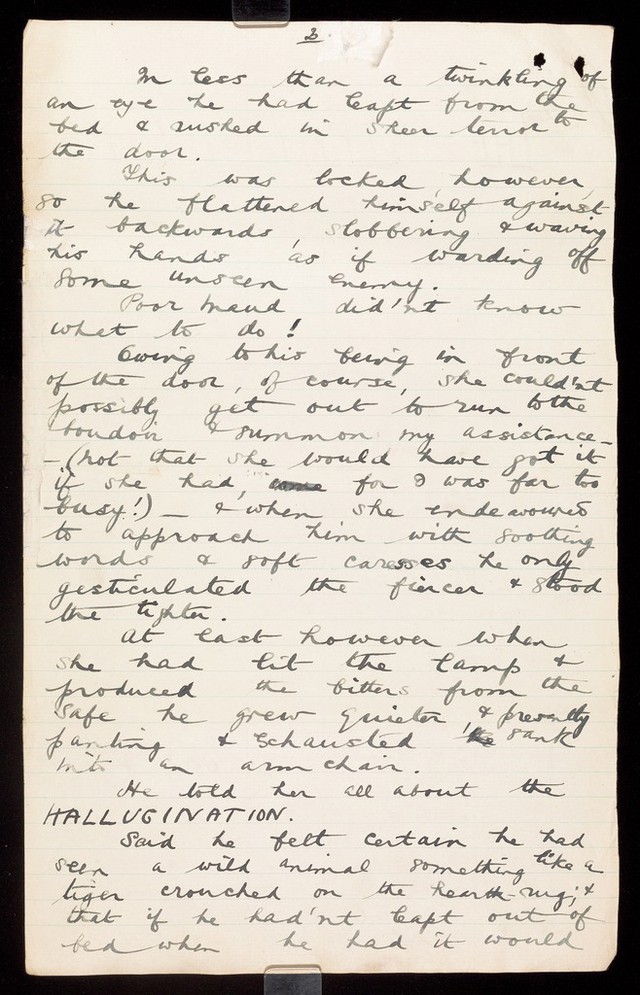 3.
In less than a twinkling of
an eye he had leapt from the
bed & rushed in sheer terror to
the door.
This was locked however,
so he flattened himself against
it backwards slobbering & waving
his hands as if warding off
some unseen enemy.
Poor Maud did'nt know
what to do!
Owing to his being in front
of the door, of course, she could'nt
possibly get out to run to the
boudoir & summon my assistance—
—(not that she would have got it
if she had, for I was far too
busy!) — & when she endeavoured
to approach him with soothing
words & soft caresses he only
gesticulated the fiercer & stood
the tighter.
At last however when
she had lit the lamp &
produced the bitters from the
safe he grew quieter, & presently
panting & exhausted sank
into an arm chair.
He told her all about the
HALLUGINATION.
Said he felt certain he had
seen a wild animal something like a
tiger crouched on the hearth-rug; &
that if he had'nt leapt out of
bed when he had it would